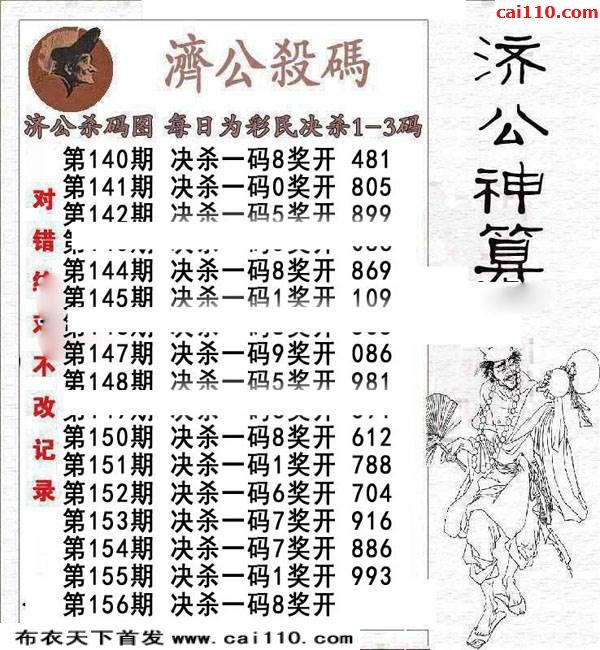 cai110.com
濟公殺碼
济公神算
济公杀码图 每日为彩民决杀1-3码
对错绝对不改记录
第140期 决杀一码8奖开 481
第141期 决杀一码0奖开 805
第142期 决杀一码5奖开 899
第144期 决杀一码8奖开 869
第145期 决杀一码1奖开 109
第147期 决杀一码9奖开 086
第148期 决杀一码5奖开 981
第150期 决杀一码8奖开 612
第151期 决杀一码1奖开 788
第152期 决杀一码6奖开 704
第153期 决杀一码7奖开 916
第154期 决杀一码7奖开 886
第155期 决杀一码1奖开 993
第156期 决杀一码8奖开
布衣天下首发 www.cai110.com